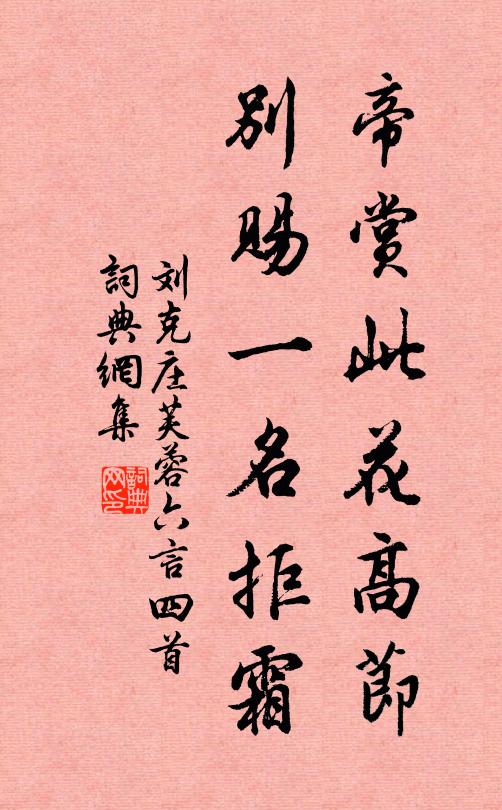 帝賞此花高節
別賜一名拒霜
刘克庄芙蓉六言四首
詞典網集
詞典網印